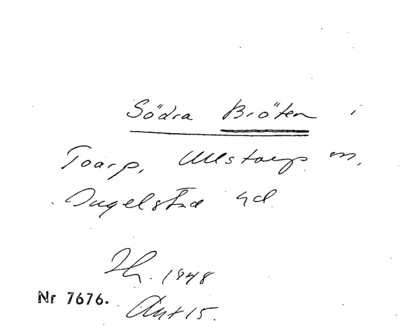 Södra Bröten i
Toarp, Ullstorp m,
Ingelsta hd
Th. 1948
Nr 7676.
Ant 15.